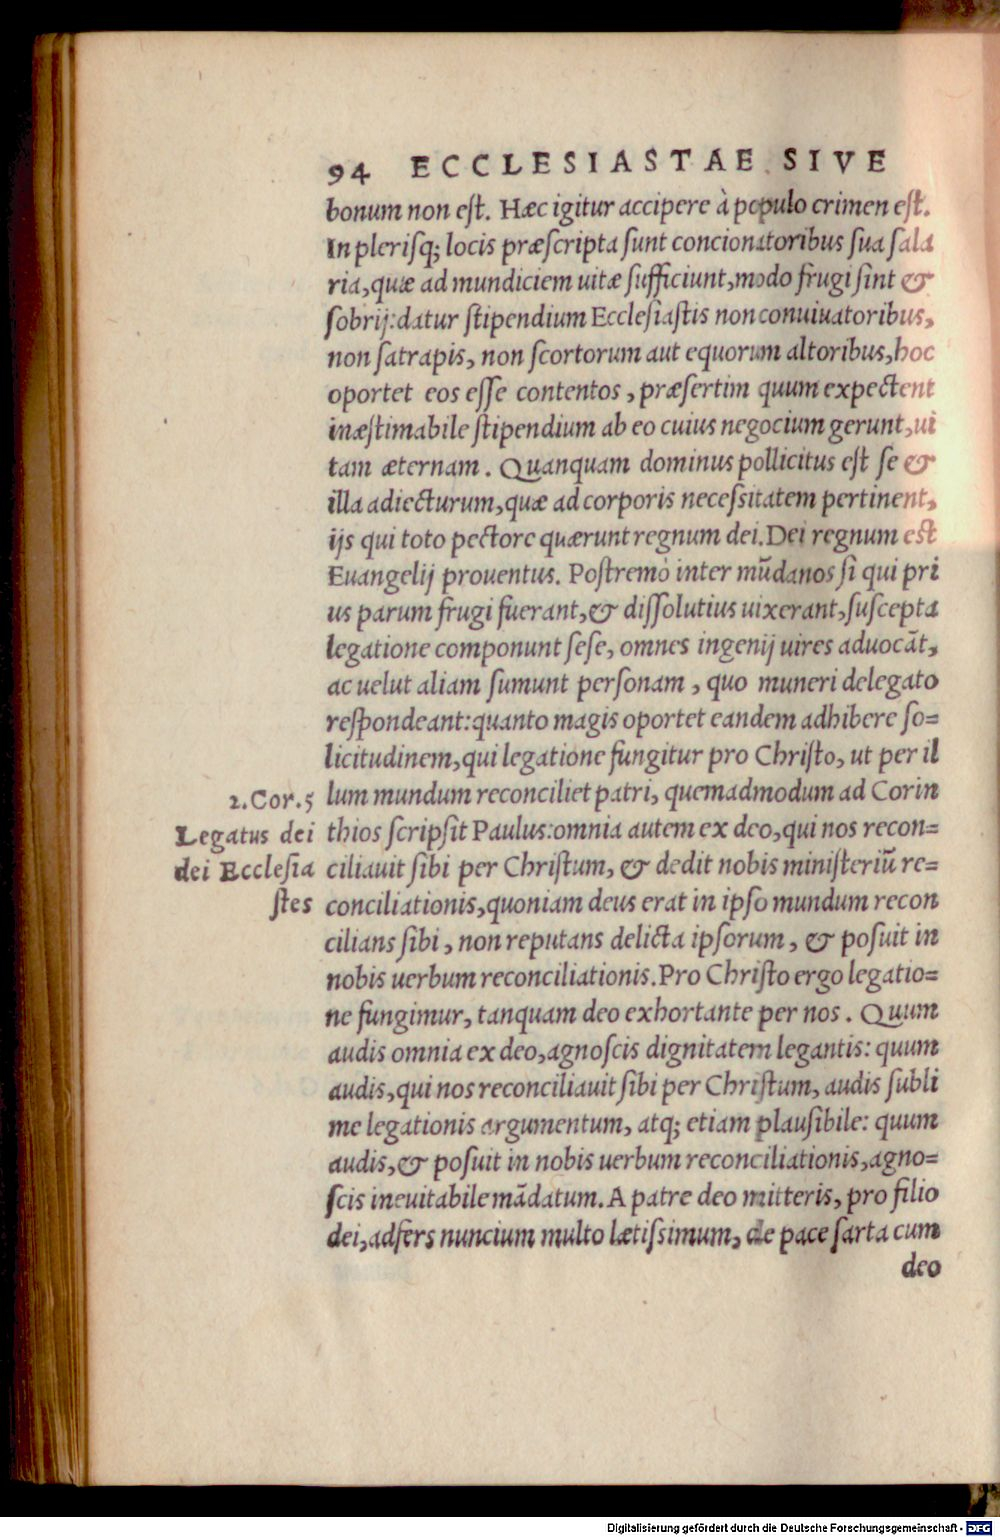 94 ECCLESIASTAE SIVE
bonum non est. Hæc igitur accipere à populo crimen est.
In plerisq; locis præscripta sunt concionatoribus sua sala
ria, quæ ad mundiciem uitæ sufficiunt, modo frugi sint &
sobrij: datur stipendium Ecclesiastis non conuiuatoribus,
non satrapis, non scortorum aut equorum altoribus, hoc
oportet eos esse contentos, præsertim quum expectent
inæstimabile stipendium ab eo cuius negocium gerunt, ui
tam æternam. Quanquam dominus pollicitus est se &
illa adiecturum, quæ ad corporis necessitatem pertinent,
ijs qui toto pectore quærunt regnum dei. Dei regnum est
Euangelij prouentus. Postremo inter mũdanos si qui pri
us parum frugi fuerant, & dissolutius uixerant, suscepta
legatione componunt sese, omnes ingenij uires aduocãt,
ac uelut aliam sumunt personam, quo muneri delegato
respondeant: quanto magis oportet eandem adhibere so=
licitudinem, qui legatione fungitur pro Christo, ut per il
2. Cor. 5
lum mundum reconciliet patri, quemadmodum ad Corin
Legatus dei
thios scripsit Paulus: omnia autem ex deo, qui nos recon=
dei Ecclesia
ciliauit sibi per Christum, & dedit nobis ministeriũ re=
stes
conciliationis, quoniam deus erat in ipso mundum recon
cilians sibi, non reputans delicta ipsorum, & posuit in
nobis uerbum reconciliationis. Pro Christo ergo legatio=
ne fungimur, tanquam deo exhortante per nos. Quum
audis omnia ex deo, agnoscis dignitatem legantis: quum
audis, qui nos reconciliauit sibi per Christum, audis subli
me legationis argumentum, atq; etiam plausibile: quum
audis, & posuit in nobis uerbum reconciliationis, agno=
scis ineuitabile mãdatum. A patre deo mitteris, pro filio
dei, adfers nuncium multo lætissimum, de pace sarta cum
deo
Digitalisierung gefördert durch die Deutsche Forschungsgemeinschaft - DFG